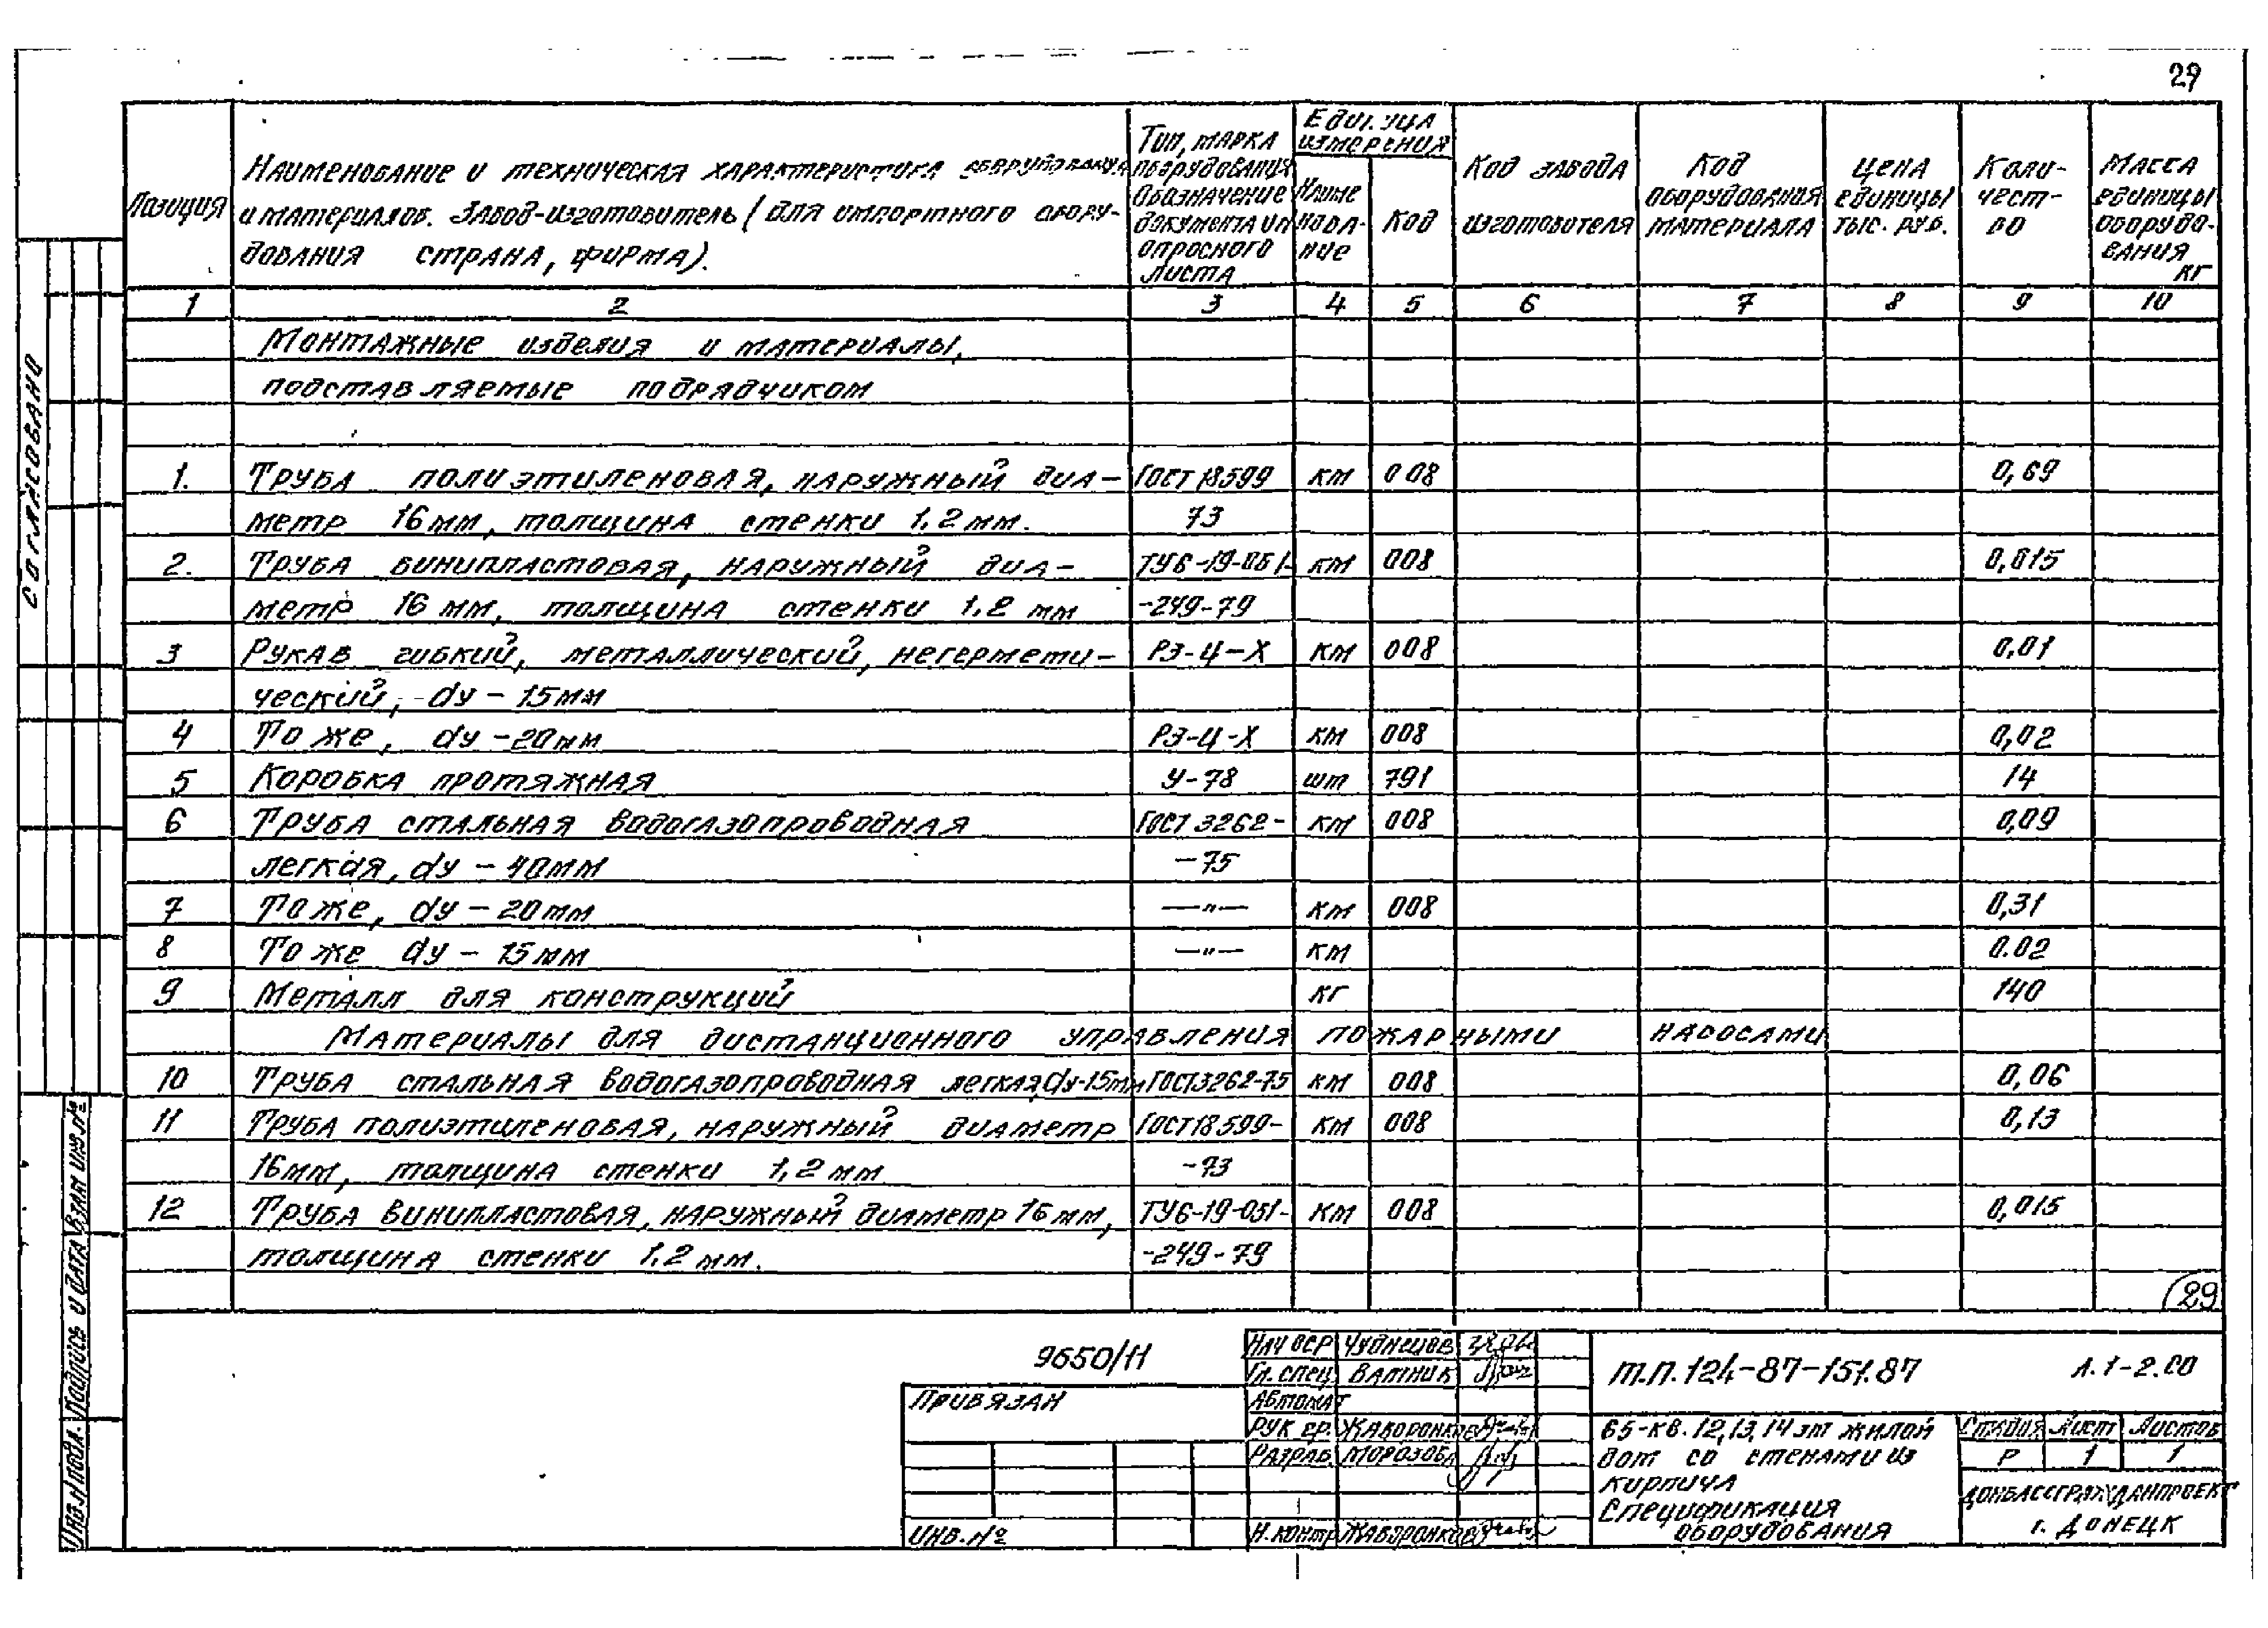 29
Позиция
Наименование и техническая характеристика оборудования
и материалов. Завод-изготовитель (для импортного обору-
дования страна, фирма).
Тип, марка
оборудования
Обозначение
документа и
опросного
листа
Единица
измерения
Наиме
нова-
ние
Код
Код завода
изготовителя
Код
оборудования
материала
Цена
единицы
тыс. руб.
Коли-
чест-
во
Масса
единицы
оборудо-
вания
кг
1 2 3 4 5 6 7 8 9 10
Монтажные изделия и материалы,
подставляемые подрядчиком
1. Труба полиэтиленовая, наружный диа- ГОСТ 18599 км 008 0,69
метр 16мм, толщина стенки 1,2 мм. 73
2. Труба винипластовая, наружный диа- ТУ6-19-051- км 008 0,015
метр 16 мм, толщина стенки 1,2 мм -249-79
3 Рукав гибкий, металлический, негермети- РЗ-Ц-Х км 008 0,01
ческий, dу - 15мм
4 То же, dу - 20мм РЗ-Ц-Х км 008 0,02
5 Коробка протяжная У-78 шт 791 14
6 Труба стальная водогазопроводная ГОСТ 3262- км 008 0,09
легкая, dу - 40мм -75
7 То же, dу - 20мм —"— км 008 0,31
8 То же dу - 15мм —"— км 0.02
9 Металл для конструкций кг 140
Материалы для дистанционного управления пожарными насосами
10 Труба стальная водогазопроводная легкая, dу-15мм ГОСТ3262-75 км 008 0,06
11 Труба полиэтиленовая, наружный диаметр ГОСТ18599- км 008 0,13
16мм, толщина стенки 1,2 мм -73
12 Труба винипластовая, наружный диаметр 16мм, ТУ6-19-051- км 008 0,015
толщина стенки 1.2 мм. -249-79
29
Согласовано
Взам инв.№
Подпись и дата
Инв.№ подл.
9650/11
Привязан
Инв.№
Нач ОСР
Гл. спец. Ватник
Автомат
Рук гр. Жаворонков
Разраб. Морозова
Н.контр Жаворонков
т.п. 124-87-151.87 А.1-2.СО
65-кв. 12,13,14 эт жилой
дом со стенами из
кирпича
Спецификация
оборудования
Стадия Лист Листов
Р 1 1
ДОНБАССГРАЖДАНПРОЕКТ
г. Донецк